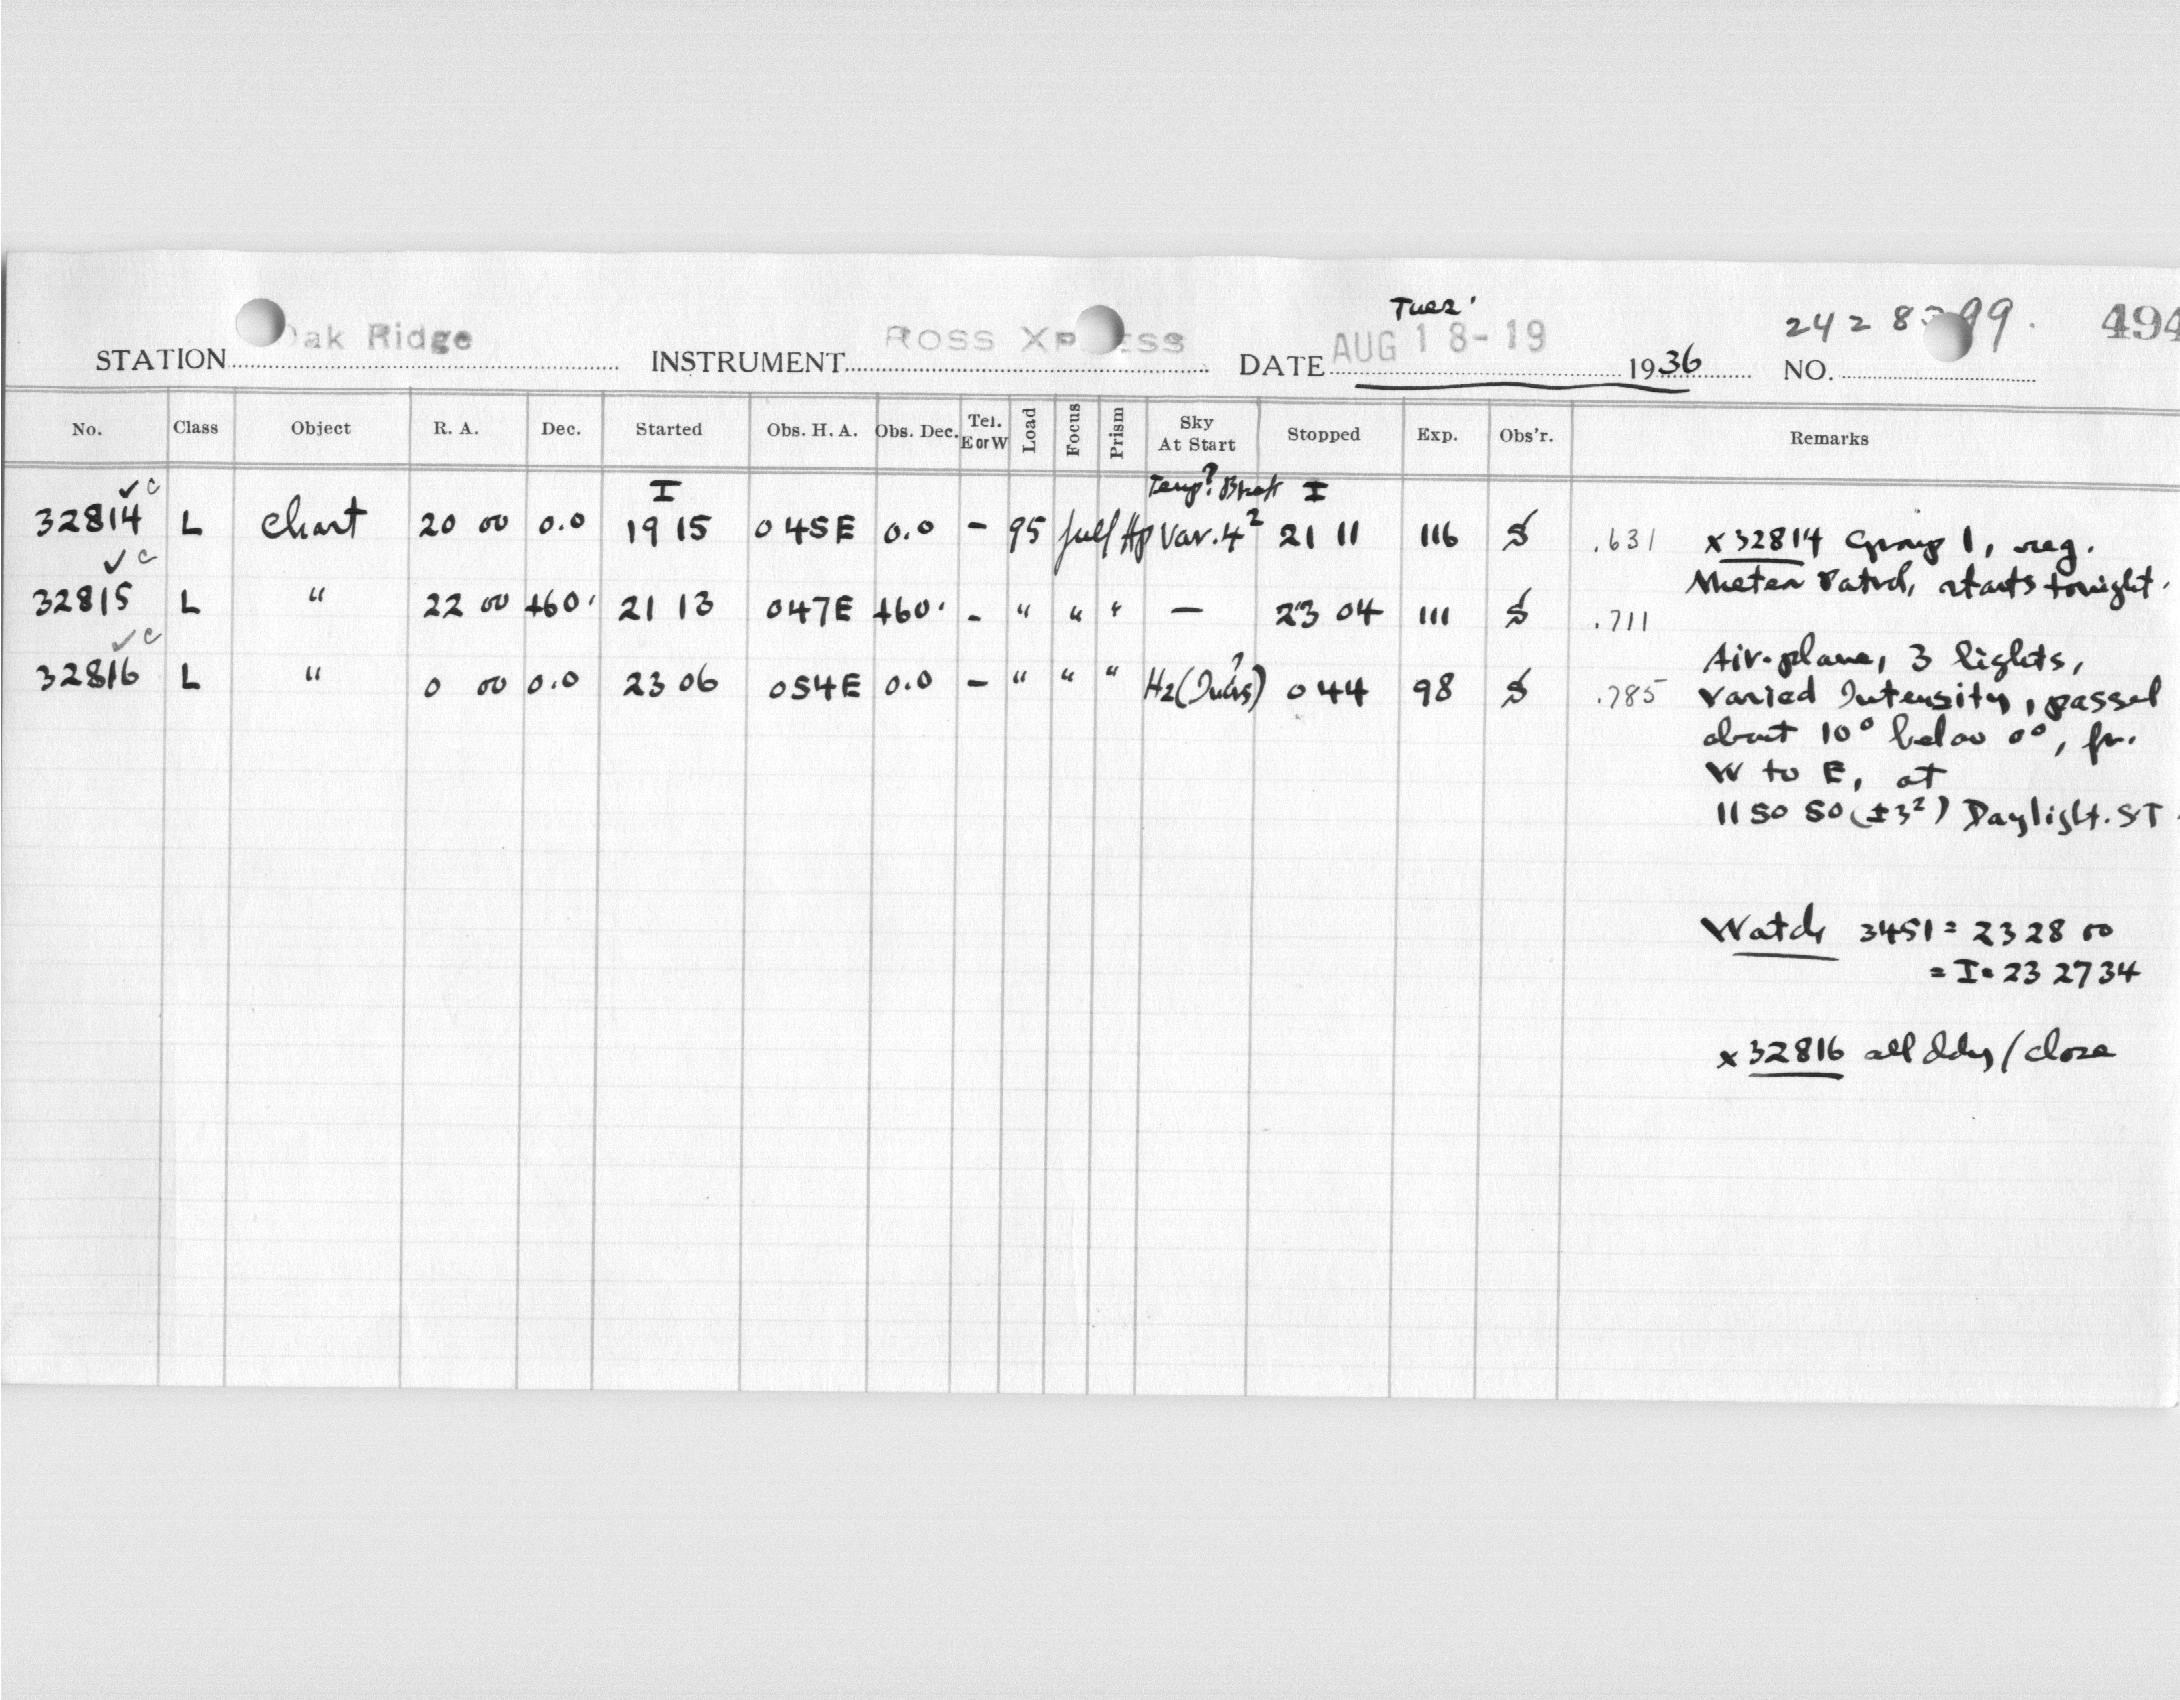 Tues'
STATION Oak Ridge INSTRUMENT ROSS XPRESS DATE AUG 18-19 1936 NO. 2428399. 494
No. Class Object R. A. Dec. Started Obs. H. A. Obs. Dec. Tel. E or W Load Focus Prism Sky At Start Stopped Exp. Obs'r. Remarks
✓ c I Temp? I
32814 L Chart 20 00 0.0 19 15 0 45E 0.0 - 95 full Hp Var. 4² 21 11 116 S .631 x 32814 Group 1, reg.
✓ c Meteor Patrol, starts tonight.
32815 L " 22 00 +60' 21 13 0 47E +60' - " " " — 23 04 111 S .711
✓ c Air-plane, 3 lights,
32816 L " 0 00 0.0 23 06 0 54E 0.0 - " " " Hz 0 44 98 S .785 varied Intensity, passed
about 10° below 0°, fr.
W to E, at
11 50 50 (±3²) Daylight. S.T.
Watch 3451 = 23 28 00
= I = 23 27 34
x 32816 all / close